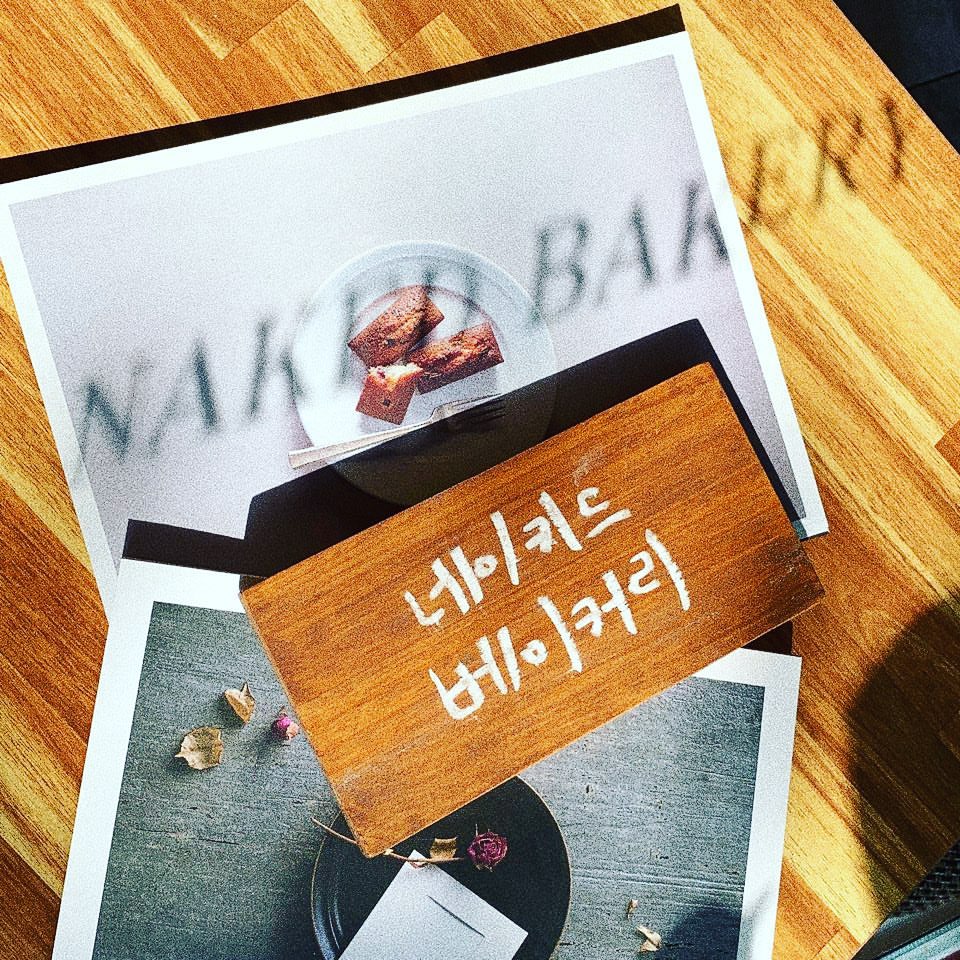 NAKED BAKERY
네이키드
베이커리